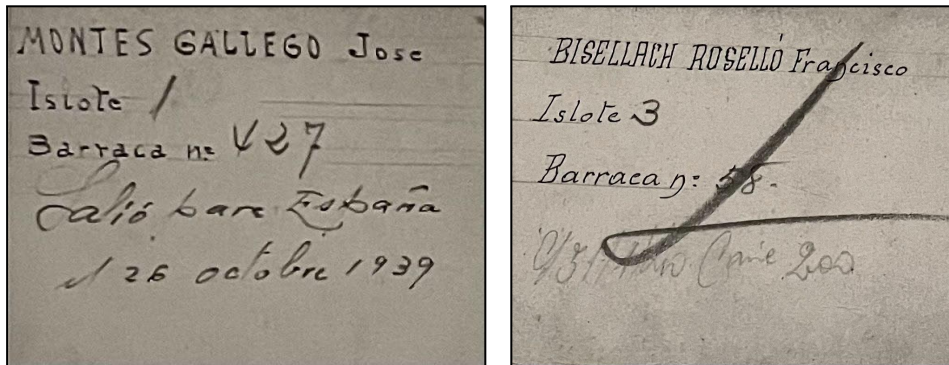 MONTES GALLEGO Jose
Islote 1
Barraca nº 427
Salió para España
el 26 octobre 1939
BISELLACH ROSELLÓ Francisco
Islote 3
Barraca nº: 58.
Cnie 200